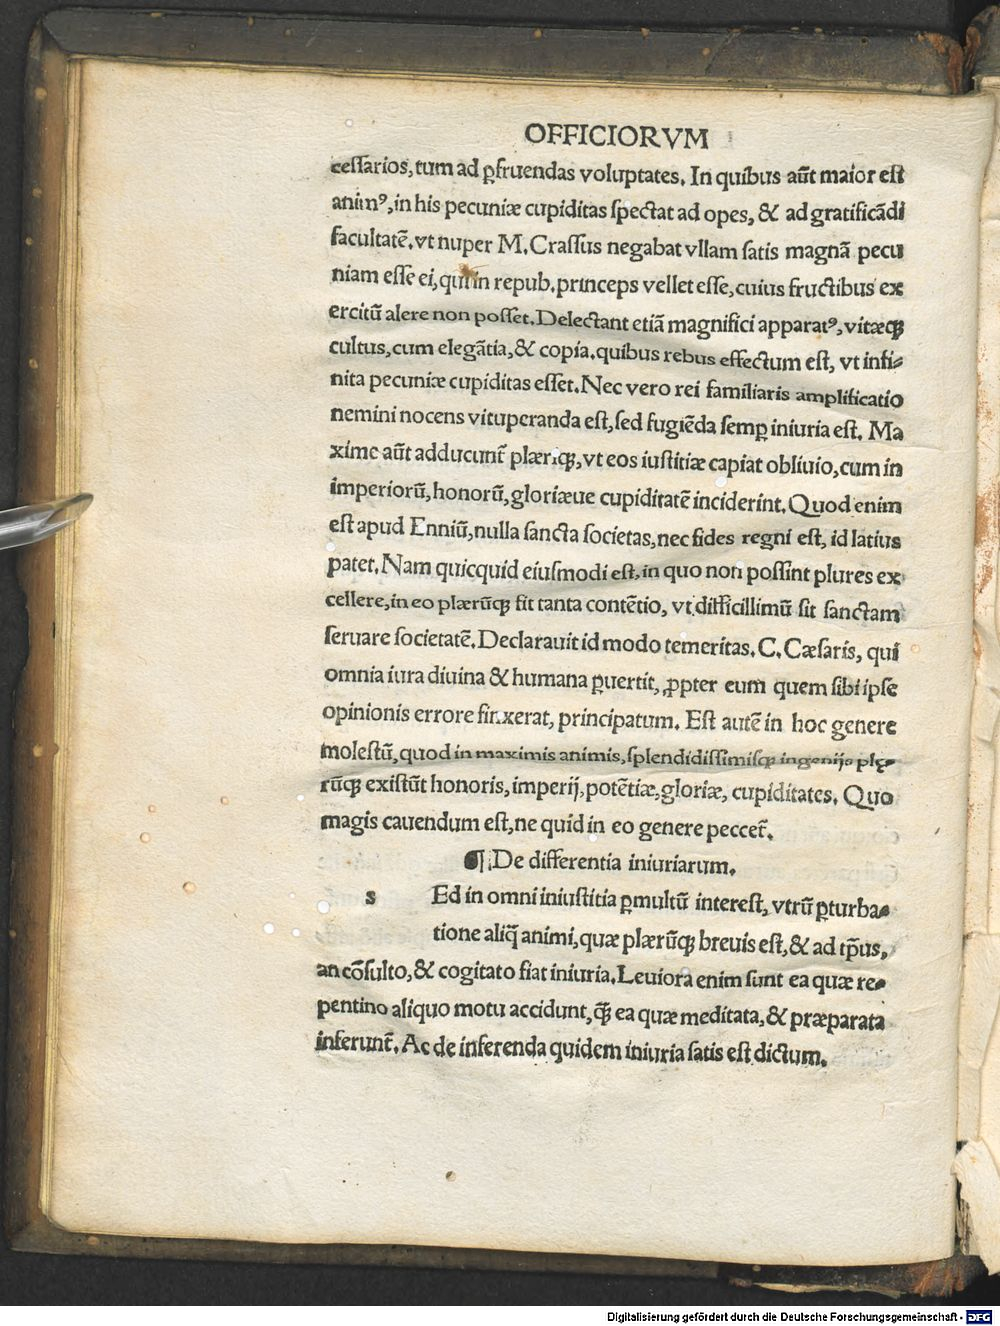 OFFICIORVM
ceſſarios, tum ad ꝑfruendas voluptates. In quibus aūt maior eſt
animꝰ, in his pecuniæ cupiditas ſpectat ad opes, & ad gratificādi
facultatē. vt nuper M. Craſſus negabat vllam ſatis magnā pecu
niam eſſe ei, qui in repub. princeps vellet eſſe, cuius fructibus ex
ercitū alere non poſſet. Delectant etiā magnifici apparatꝰ, vitæqꝫ
cultus, cum elegātia, & copia. quibus rebus effectum eſt, vt infi-
nita pecuniæ cupiditas eſſet. Nec vero rei familiaris amplificatio
nemini nocens vituperanda eſt, ſed fugiēda ſemꝑ iniuria eſt. Ma
xime aūt adducunt̄ plæriqꝫ, vt eos iuſtitiæ capiat obliuio, cum in
imperiorū, honorū, gloriæue cupiditatē inciderint. Quod enim
eſt apud Enniū, nulla ſancta ſocietas, nec fides regni eſt, id latius
patet. Nam quicquid eiuſmodi eſt, in quo non poſſint plures ex
cellere, in eo plærūqꝫ fit tanta contētio, vt difficillimū ſit ſanctam
ſeruare ſocietatē. Declarauit id modo temeritas. C. Cæſaris, qui
omnia iura diuina & humana ꝑuertit, ꝓpter eum quem ſibi ipſe
opinionis errore finxerat, principatum. Eſt autē in hoc genere
moleſtū, quod in maximis animis, ſplendidiſſimiſqꝫ ingenijs plę-
rūqꝫ exiſtūt honoris, imperij, potētiæ, gloriæ, cupiditates. Quo
magis cauendum eſt, ne quid in eo genere peccet̄.
¶ De differentia iniuriarum.
s Ed in omni iniuſtitia ꝑmultū intereſt, vtrū ꝑturba-
tione aliq̄ animi, quæ plærūqꝫ breuis eſt, & ad tp̄us,
an cōſulto, & cogitato fiat iniuria. Leuiora enim ſunt ea quæ re-
pentino aliquo motu accidunt, q̄ꝫ ea quæ meditata, & præparata
inferunt̄. Ac de inferenda quidem iniuria ſatis eſt dictum.
Digitalisierung gefördert durch die Deutsche Forschungsgemeinschaft - DFG